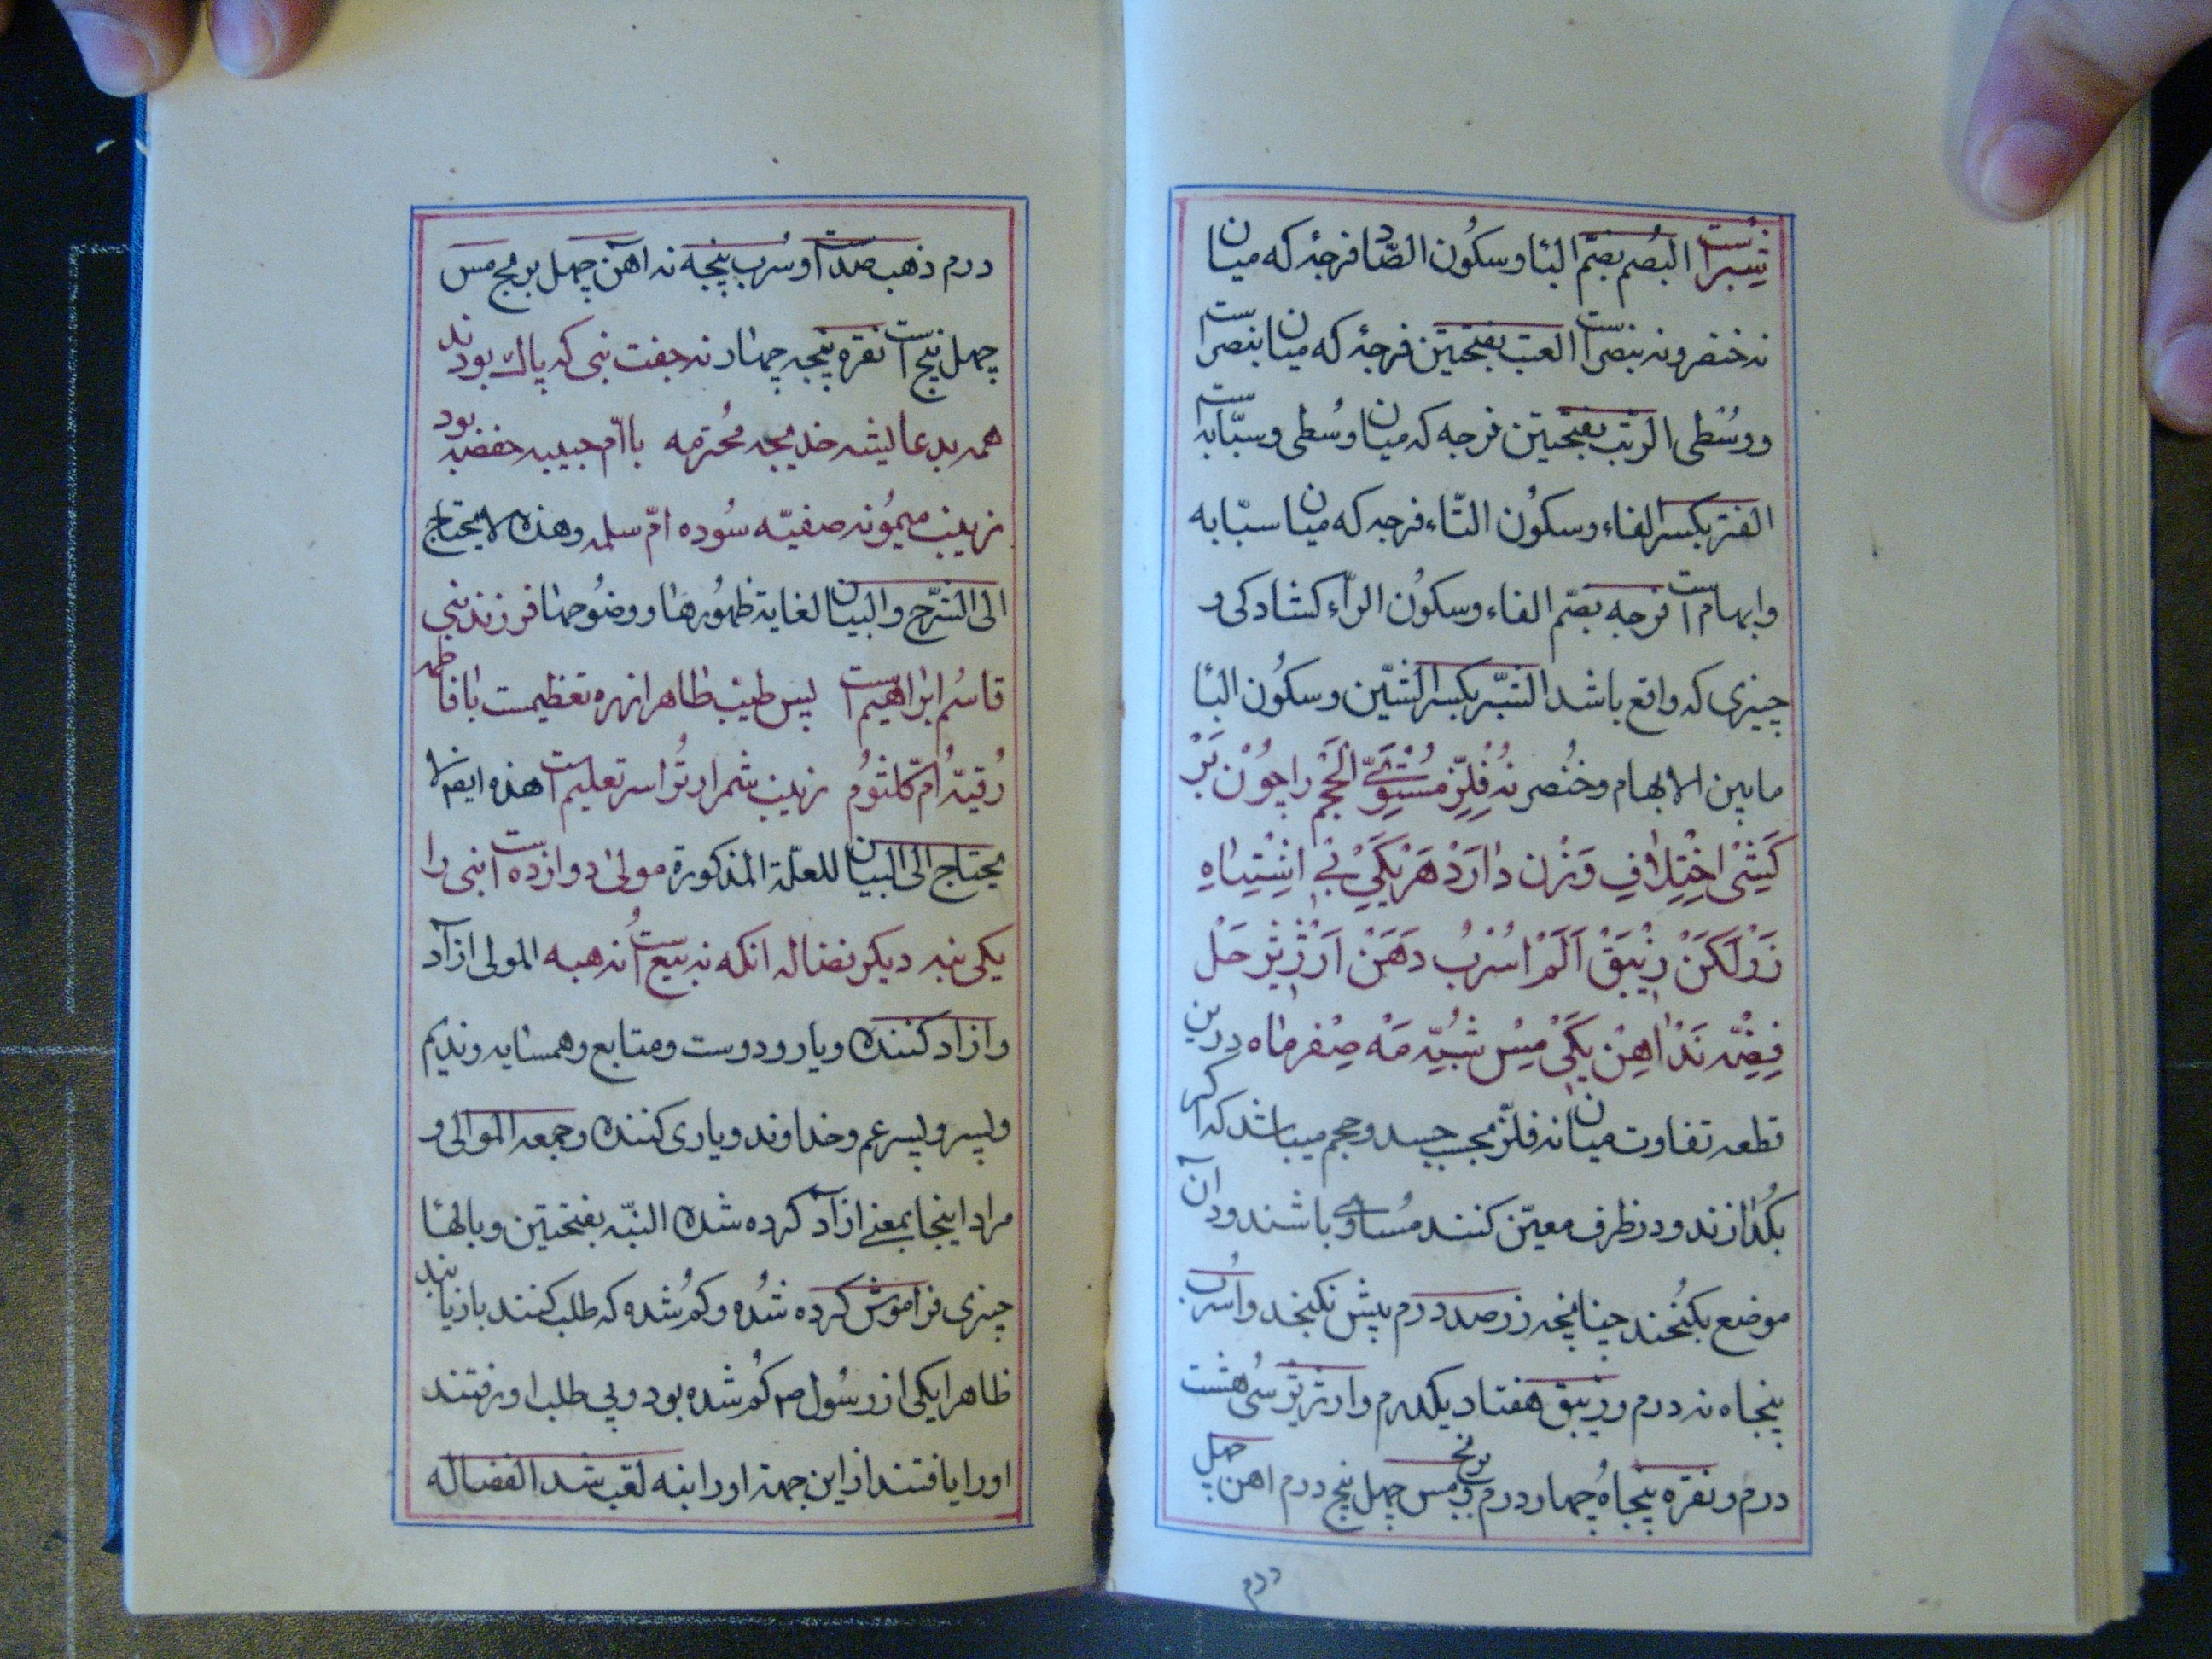 تبسرا ست البُصم بضمّ البا وسکُون الصّاد فرجهٔ که میان
نه خنصر و نه بنصر است العتب بفتحتین فرجهٔ که میان بنصر است
و وُسْطی الرتب بفتحتین فرجه که میان وُسطی و سبّابه است
الفتر بکسر الفاء وسکُون التّاء فرجه که میان سبّابه
وابهام است فرجه بضّم الفاء وسکُون الرّاء کشادکی و
چیزی که واقع باشد الشبّر بکسر الشّین وسکُون البا
مابین الابهام وخنُصر نُه فِلِزّ مُسْتَوِیّ الحَجْم را چُوْن بَرْ
کَشِیْ اِخْتِلافِ وَزْن دارَدْ هَرْیَکیْ بیْ اِشْتِباهِ
زَرْ لَکَنْ زِیْبَقْ اَلَمْ اُسْرُبْ دَهَنْ اَرْزِیْز حَلْ
فِضّه نَدْ اهِنْ یَکیْ مِسْ شُبّه مَه صِفر ماه درین
قطعه تفاوت میان نه فلزّ بحسب جسد وحجم میباشد که اکر
بکُدازند و در ظرف معیّن کنند مُساوی باشند و در آن
موضع بکنُجند چنانچه زر صد درم بیش نکنجد و اُسرُب
پنجاه نه درم و زیبق هفتاد یکدرم و ارزیز سُی هشت
درم و نقره پنجاهُ چهار درم و برنج و مس چهل پنج درم اهن چهل
درم
درم ذهب صد است و سُرب پنجه نه اهن چهل برنج مس
چهل پنج است نقره پنجه چهار نه جفت نبی که پاك بودند
همه بد عایشه خدیجه مُحترمه با اُمّ حبیبه حفصه بود
زینب میمُونه صفیّه سُوده امّ سلمه وهذه لا یحتاج
الی الشرّح والبیان لغایة ظهُورها و وضُوحها فرزند نبی
قاسُم ابراهیم است پس طیب طاهر از ره تعظیمست با فاطمه
رُقیّه اُمّ کلثوُم زینب شمر ار تُرا سر تعلیم است هذه ایضا لا
یحتاج الی البیان للعلّة المذکورة مولی دوازده است نبی را
یکی نبه دیکر فضاله انکه نه بیع است نُه هبه المولی ازآد
وازاد کننده ویار ودوست ومتابع وهمسایه وندیم
وپسر وپسر عم وخداوند ویاری کننده وجمعه الموالی و
مراد اینجا بمعنے ازآد کرده شده النبّه بفتحتین وبالها
چیزی فراموش کرده شُده وکم شُده که طلب کنند بازیابند
ظاهرا یکی از رسُول ص کُم شده بود و پی طلب او رفتند
اورا یافتند از این جهة اورا نبه لقب شد الفضاله